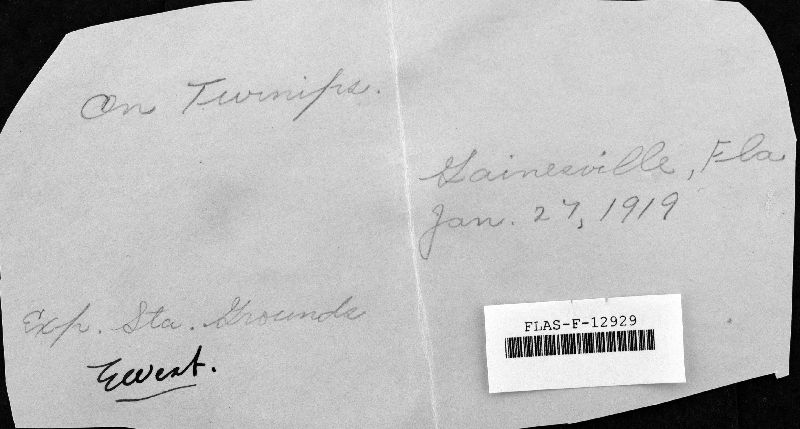 On Turnips.
Gainesville, Fla
Jan. 27, 1919
Exp. Sta. Grounds
EWest.
FLAS-F-12929